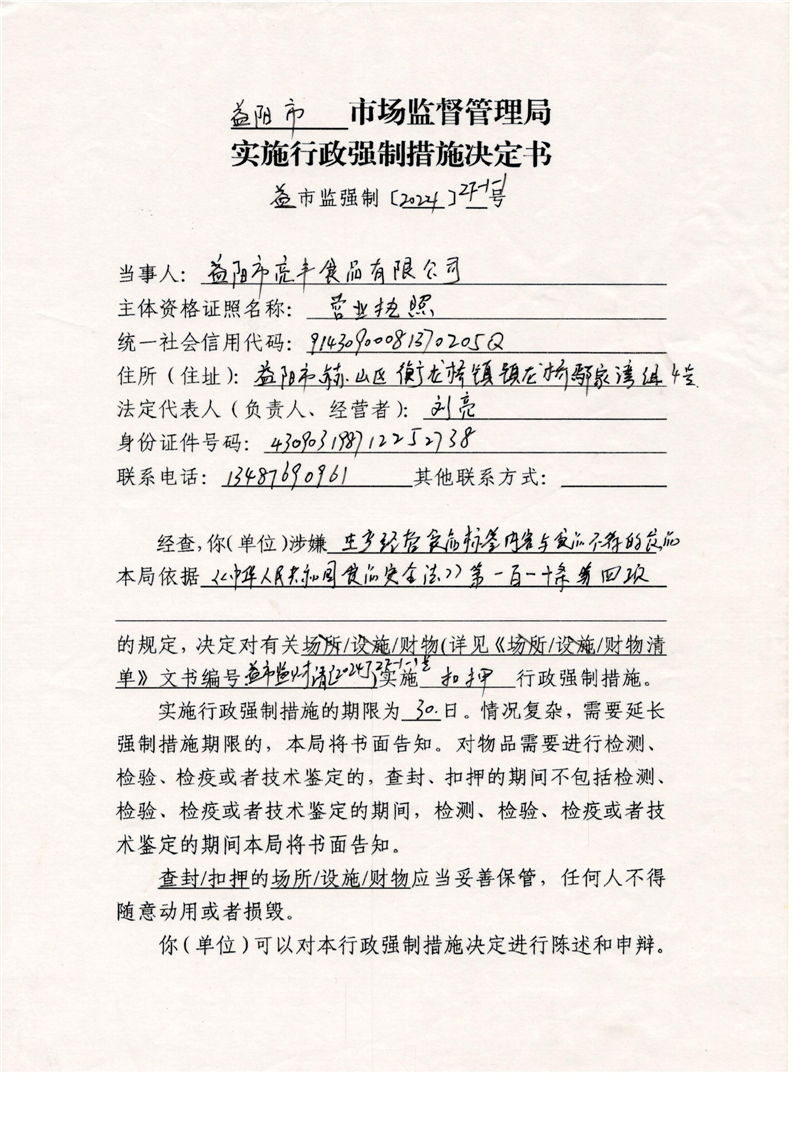 益阳市 市场监督管理局
实施行政强制措施决定书
益市监强制〔2024〕27-1-1号
当事人：益阳市亮丰食品有限公司
主体资格证照名称：营业执照
统一社会信用代码：91430900081370205Q
住所（住址）：益阳市赫山区衡龙桥镇镇龙桥鄢家湾组4号
法定代表人（负责人、经营者）：刘亮
身份证件号码：430903198712252738
联系电话：13487690961 其他联系方式：
经查，你（单位）涉嫌 生产经营食品标签内容与食品不符的食品
本局依据《中华人民共和国食品安全法》第一百一十条第四项
的规定，决定对有关场所/设施/财物（详见《场所/设施/财物清
单》文书编号益市监财清〔2024〕27-1-1号）实施 扣押 行政强制措施。
实施行政强制措施的期限为 30 日。情况复杂，需要延长
强制措施期限的，本局将书面告知。对物品需要进行检测、
检验、检疫或者技术鉴定的，查封、扣押的期间不包括检测、
检验、检疫或者技术鉴定的期间，检测、检验、检疫或者技
术鉴定的期间本局将书面告知。
查封/扣押的场所/设施/财物应当妥善保管，任何人不得
随意动用或者损毁。
你（单位）可以对本行政强制措施决定进行陈述和申辩。